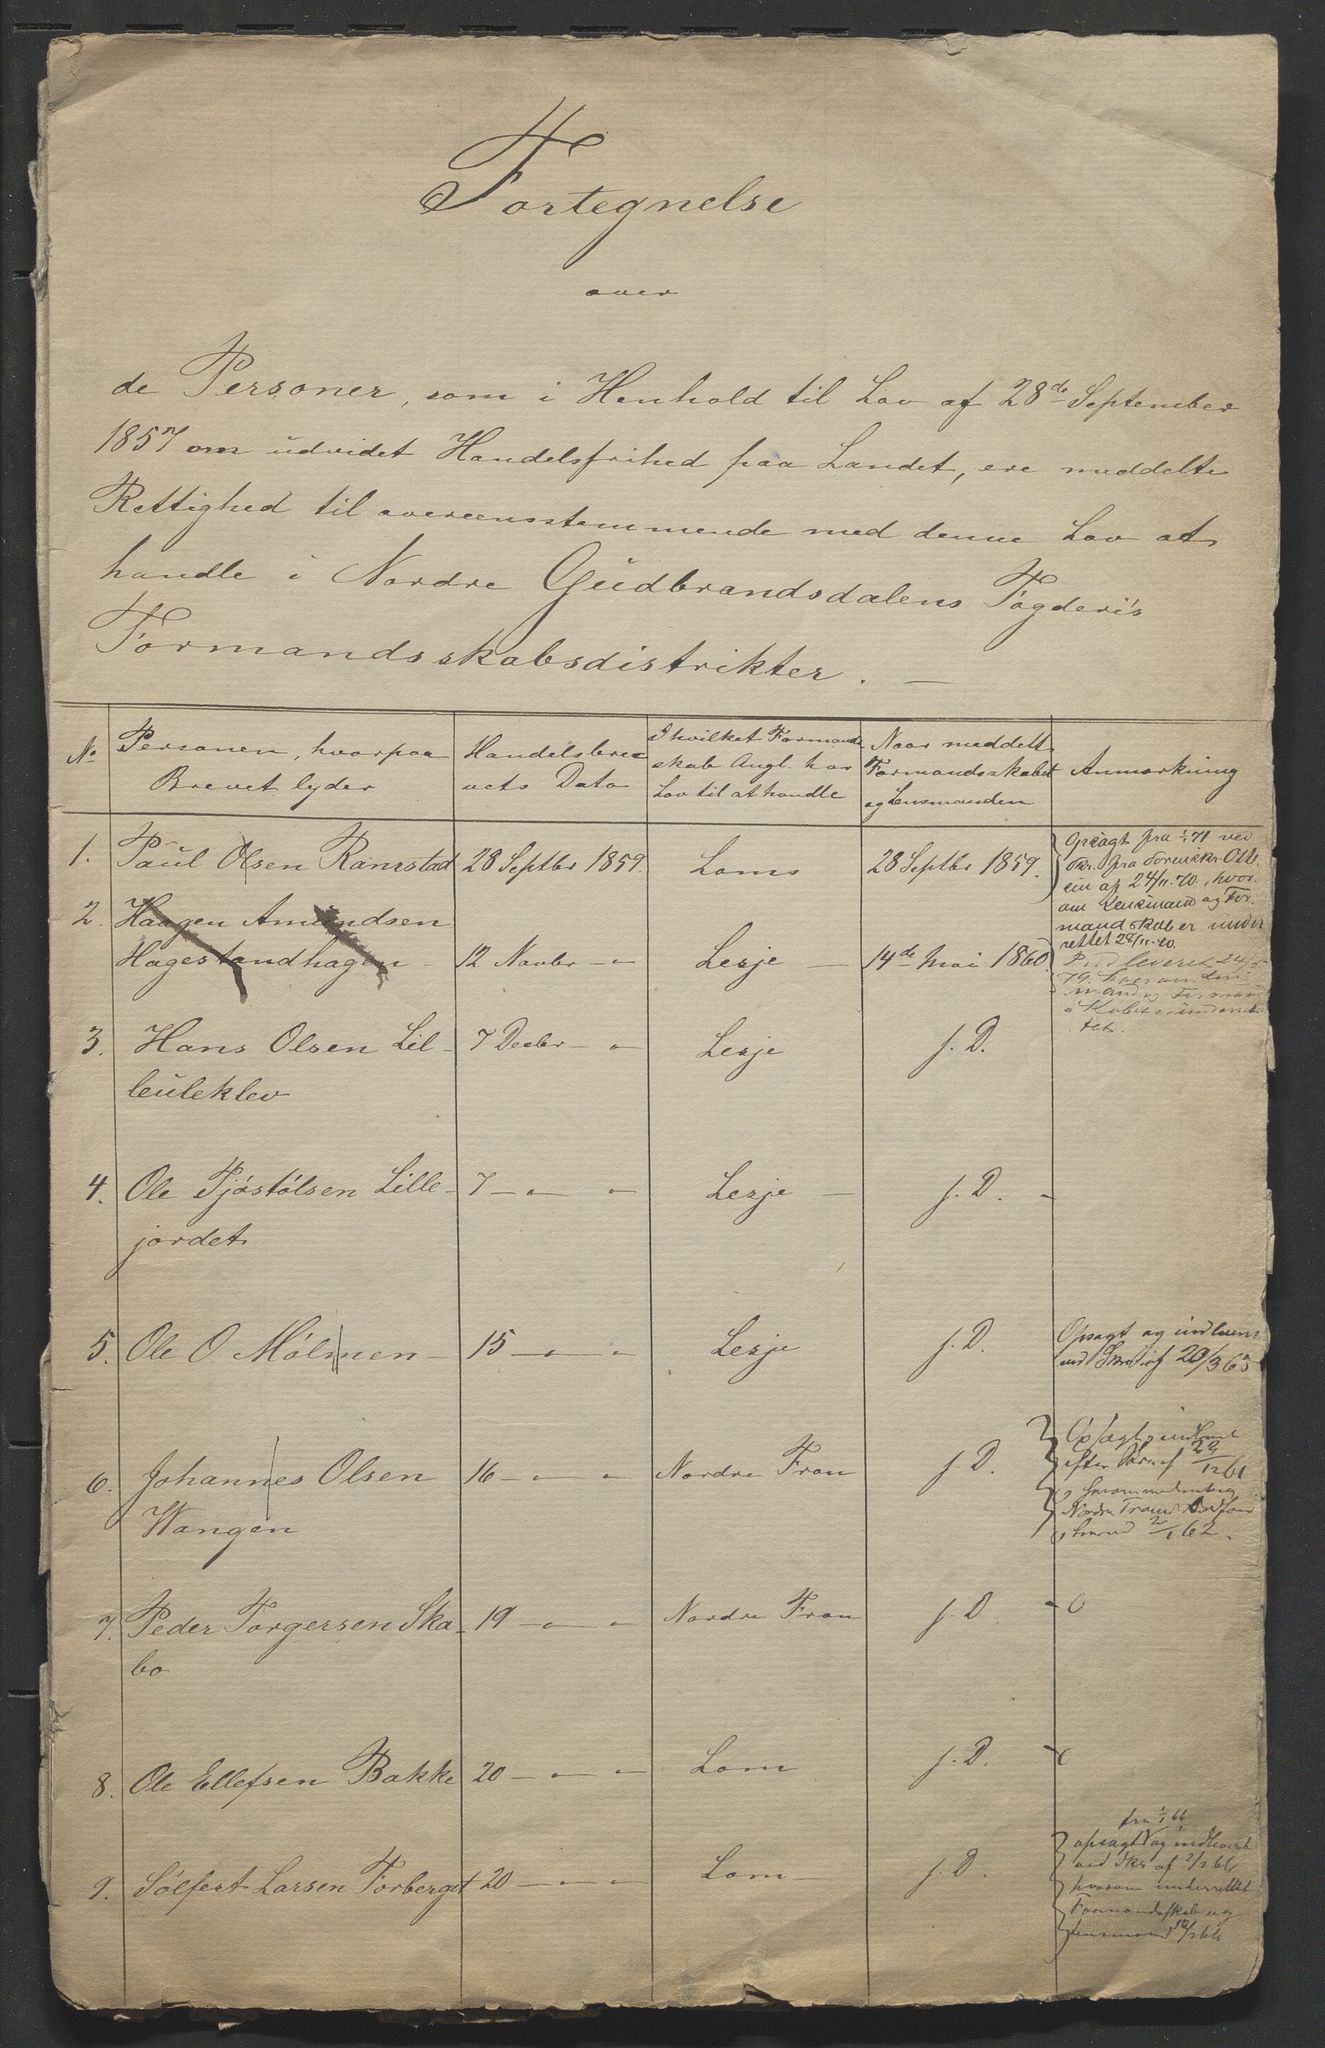 Fortegnelse
over
de Personer, som i Henhold til Lov af 28de September
1857 om udvidet Handelsfrihed paa Landet, ere meddelte
Rettighed til overeensstemmende med denne Lov at
handle i Nordre Gudbrandsdalens Fogderi's
Formandsskabsdistrikter. —
No Personen, hvorpaa Brevet lyder | Handelsbrevets Dato | I hvilket Formandskab Angl. har Lov til at handle | Naar meddelt Formandsskabet og Lensmanden | Anmærkning
1. Paul Olsen Ramstad 28 Septbr 1859. Loms 28 Septbr 1859.
Opsagt fra 1/1 71 ved
Skr. fra
af 24/11.70, hvor-
om Lensmand og For-
mandskab er under
rettet 28/11.70.
2. Haagen Amundsen
Hagestandhagen 12 Novbr - " Lesje — 14de Mai 1860
leveret
3. Hans Olsen Lil- 7 Decbr - " Lesje f. D.
leuleklev
4. Ole Tjøstølsen Lille- 7 - " - " Lesje — f. D. -
jordet
5. Ole O. Mølmen 15 - " - " Lesje f. D.
Opsagt og indleve
af 20/3 65
6. Johannes Olsen 16 - " - " Nordre Fron f. D.
Wangen
Opsagt
efter Skr. af 29/12 61
Nordre Fron
2/1 62.
7. Peder Torgersen Ska- 19 - " - " Nordre Fron f. D -
bo
8. Ole Ellefsen Bakke 20 - " - " Lom f. D. -
9. Sølfest Larsen Forberget 20 - " - " Lom — f. D.
fra 1/1 66
opsagt og indleveret
ved Skr af
hvorom underrettet
Formandsskab og
Lensmand